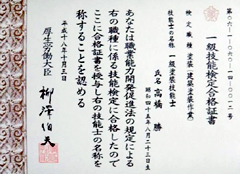 第〇六-一-〇六〇-一四-〇〇一三号
一級技能検定合格証書
検定職種 塗装(建築塗装作業)
技能士の名称 一級塗装技能士
氏名 高橋 勝
昭和四十五年八月二十三日生
あなたは職業能力開発促進法の規定による
右の職種に係る技能検定に合格したので
ここに合格証書を授与し右の技能士の名称を
称することを認める
平成十八年十月三日
厚生労働大臣
柳澤伯夫